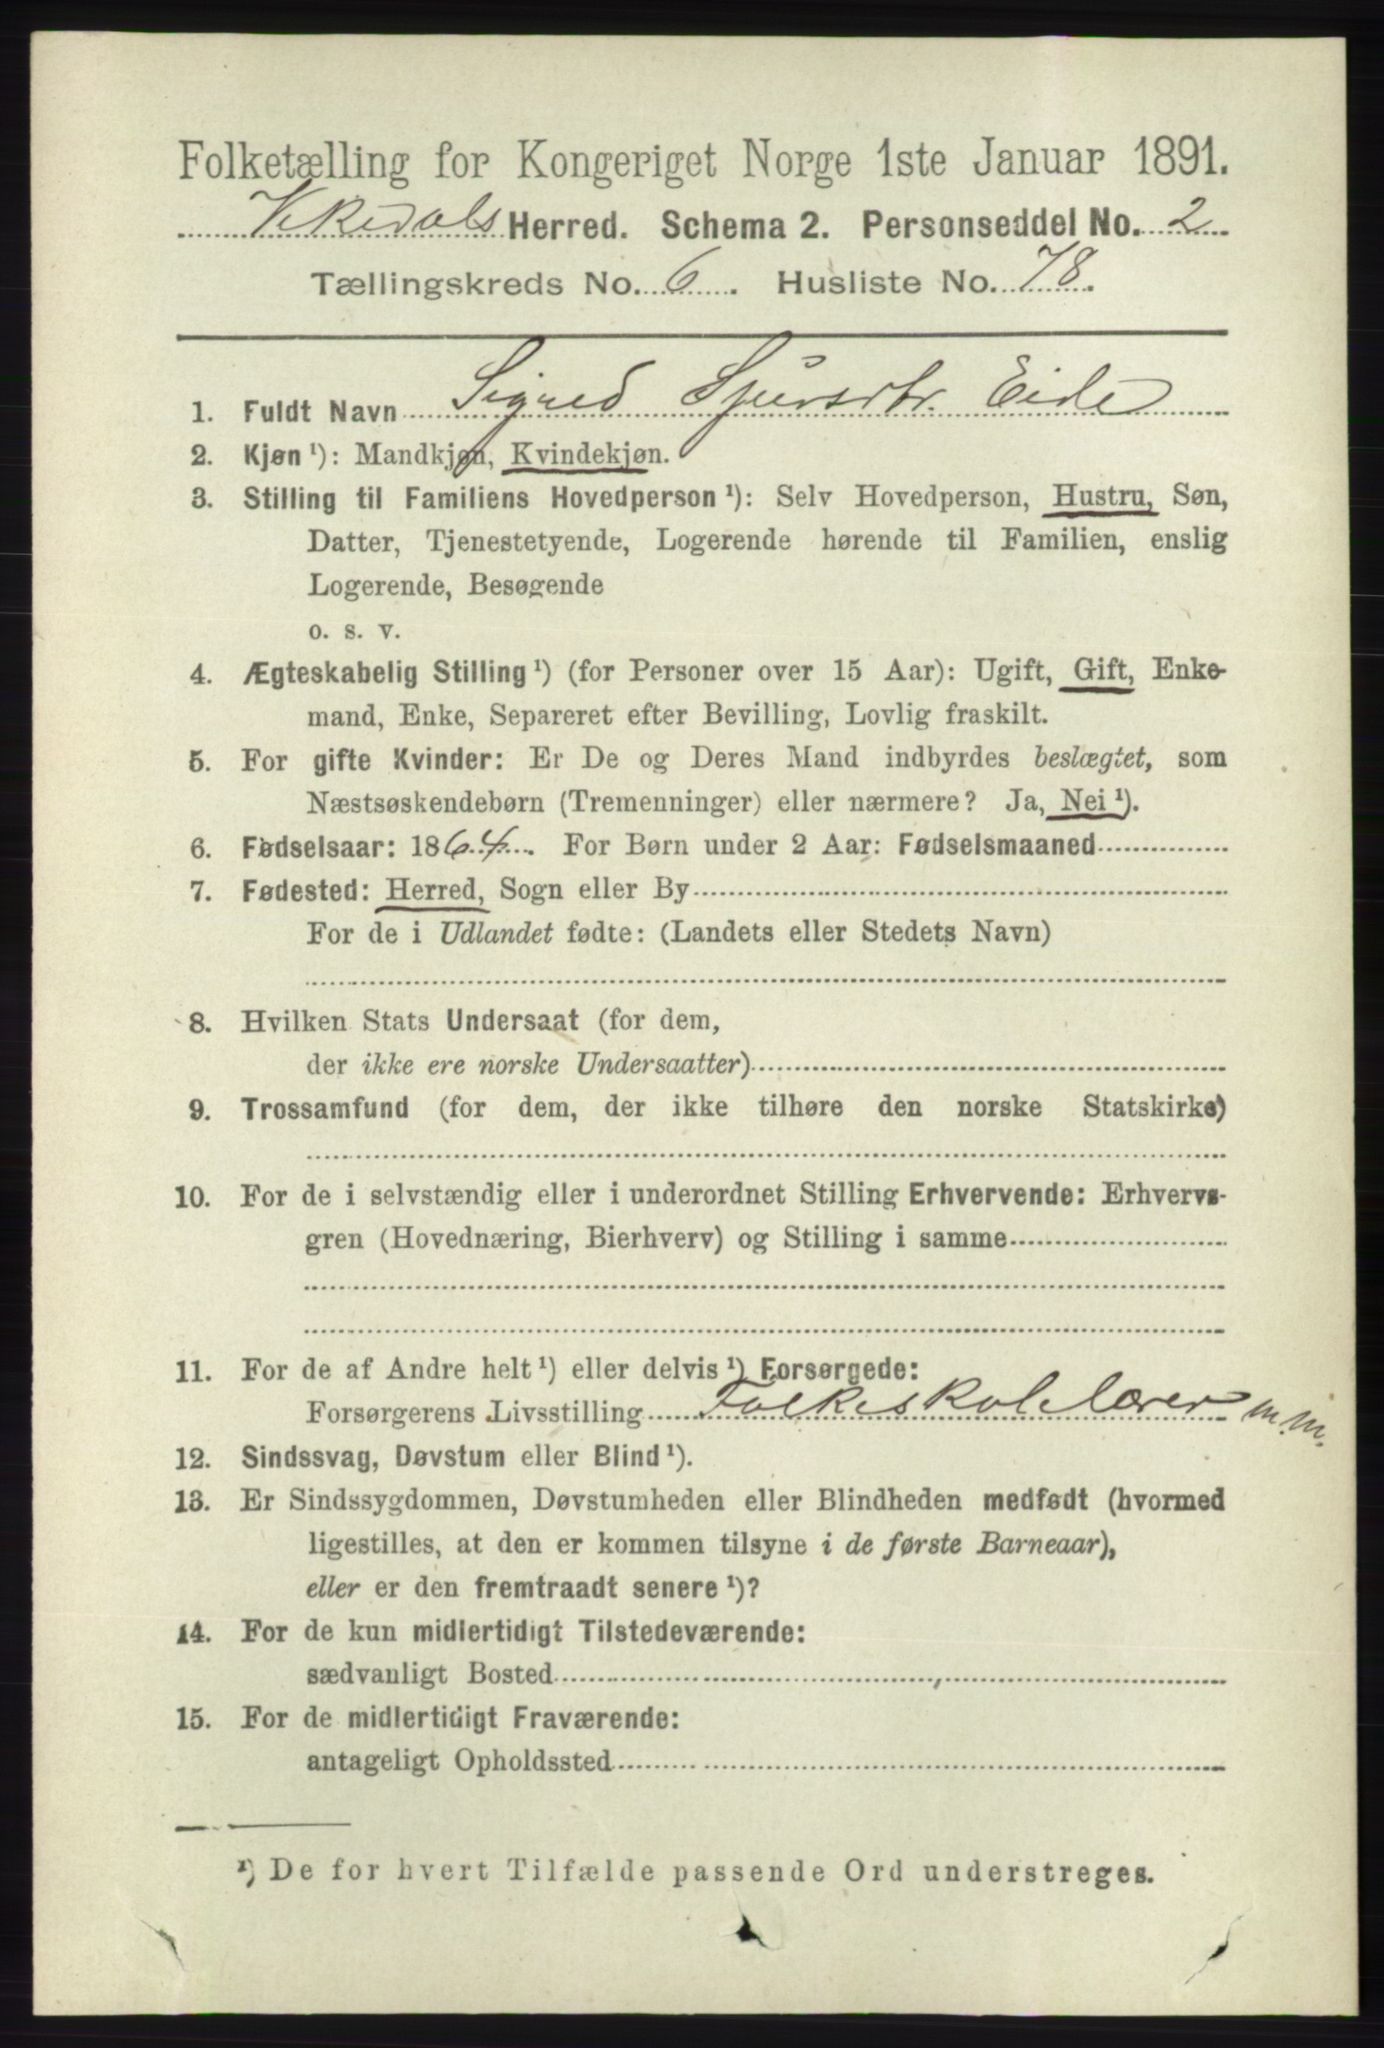 Folketælling for Kongeriget Norge 1ste Januar 1891.
Vikedals Herred. Schema 2. Personseddel No. 2
Tællingskreds No. 6. Husliste No. 78.
1. Fuldt Navn Signed Sjursdtr. Eide
2. Kjøn ¹): Mandkjøn, Kvindekjøn.
3. Stilling til Familiens Hovedperson ¹): Selv Hovedperson, Hustru, Søn,
Datter, Tjenestetyende, Logerende hørende til Familien, enslig
Logerende, Besøgende
o. s. v.
4. Ægteskabelig Stilling ¹) (for Personer over 15 Aar): Ugift, Gift, Enke-
mand, Enke, Separeret efter Bevilling, Lovlig fraskilt.
5. For gifte Kvinder: Er De og Deres Mand indbyrdes beslægtet, som
Næstsøskendebørn (Tremenninger) eller nærmere? Ja, Nei ¹).
6. Fødselsaar: 1864. For Børn under 2 Aar: Fødselsmaaned
7. Fødested: Herred, Sogn eller By
For de i Udlandet fødte: (Landets eller Stedets Navn)
8. Hvilken Stats Undersaat (for dem,
der ikke ere norske Undersaatter)
9. Trossamfund (for dem, der ikke tilhøre den norske Statskirke)
10. For de i selvstændig eller i underordnet Stilling Erhvervende: Erhvervs-
gren (Hovednæring, Bierhverv) og Stilling i samme
11. For de af Andre helt ¹) eller delvis ¹) Forsørgede:
Forsørgerens Livsstilling Folkeskolelærer m.m.
12. Sindssvag, Døvstum eller Blind ¹).
13. Er Sindssygdommen, Døvstumheden eller Blindheden medfødt (hvormed
ligestilles, at den er kommen tilsyne i de første Barneaar),
eller er den fremtraadt senere ¹)?
14. For de kun midlertidigt Tilstedeværende:
sædvanligt Bosted
15. For de midlertidigt Fraværende:
antageligt Opholdssted
¹) De for hvert Tilfælde passende Ord understreges.